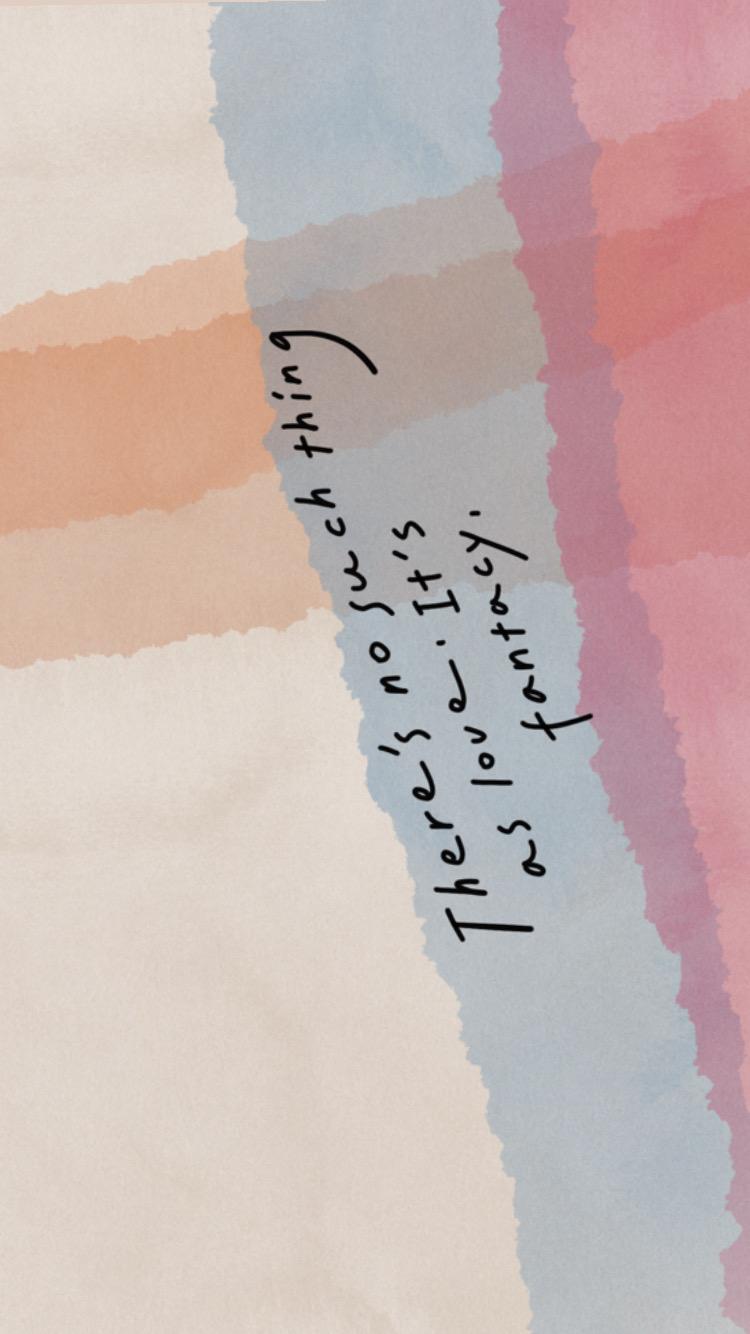 There's no such thing
as love. It's
fantacy.